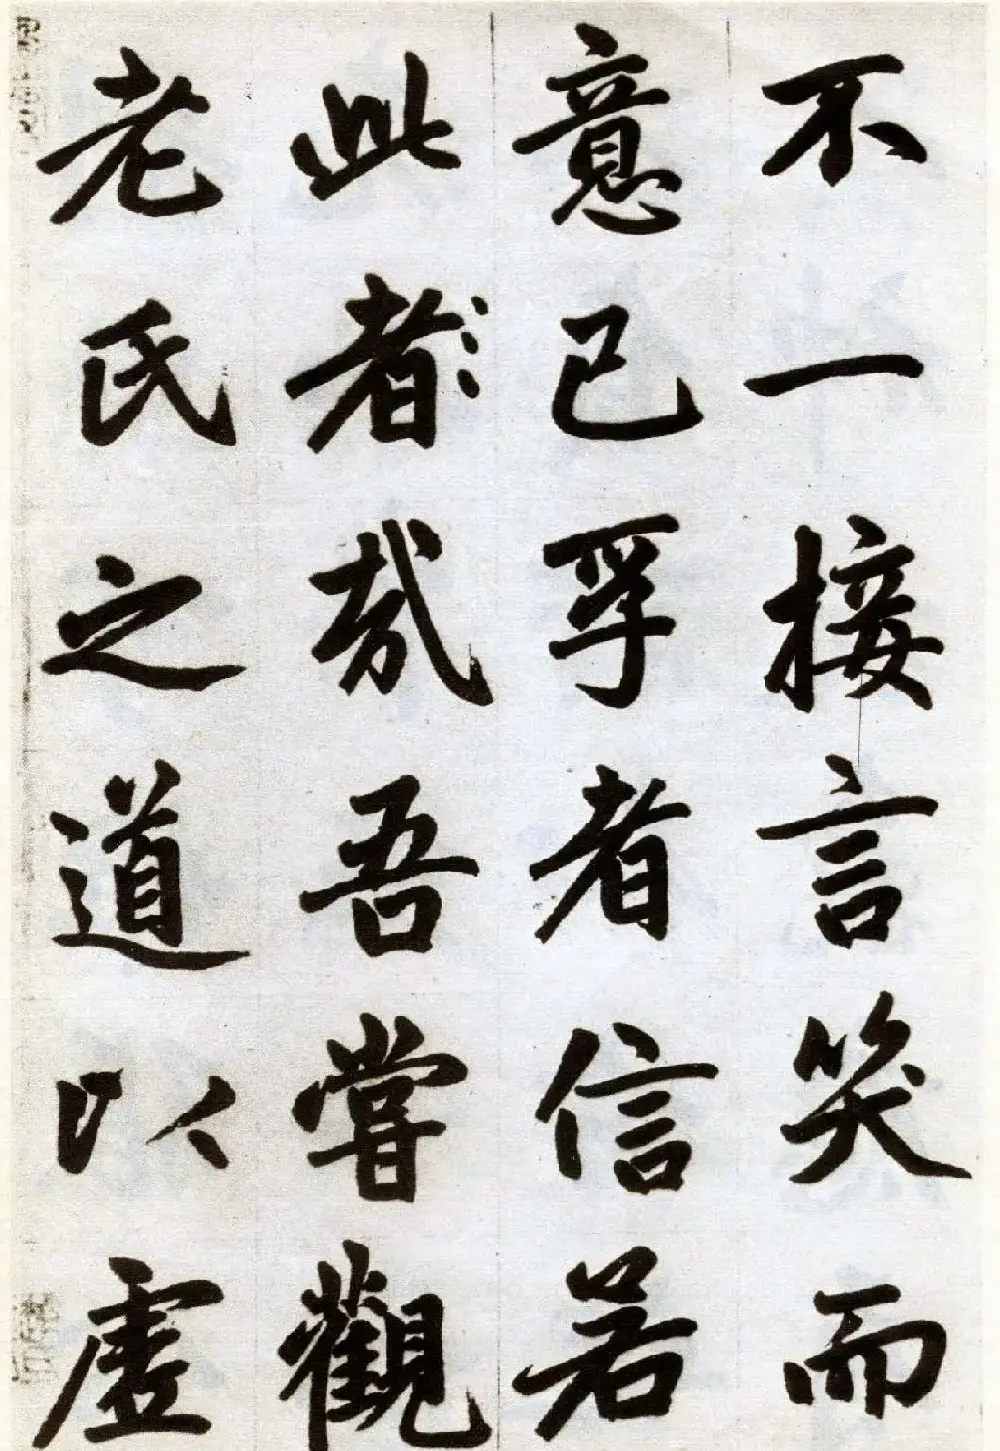 不一接言笑而
意已孚者信若
此者哉吾嘗觀
老氏之道以虛